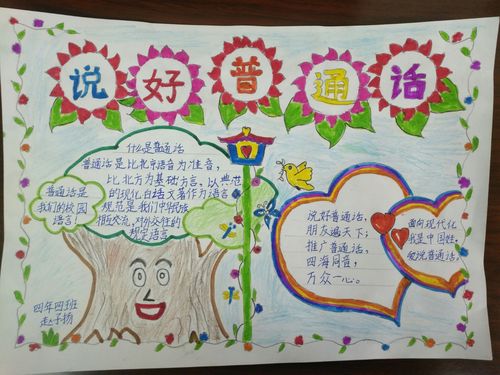 说好普通话
什么是普通话
普通话是比北京语音为准音,
比北方为基础方言,以典范
的现化白话文著作为语言
规范是我们中华民族
相互交流,对外交往的
规定语言
普通话是
我们的校园
语言
说好普通话,
朋友遍天下;
推广普通话,
四海同音,
万众一心。
面向现代化
我是中国娃,
爱说普通话,
四年四班
赵子扬